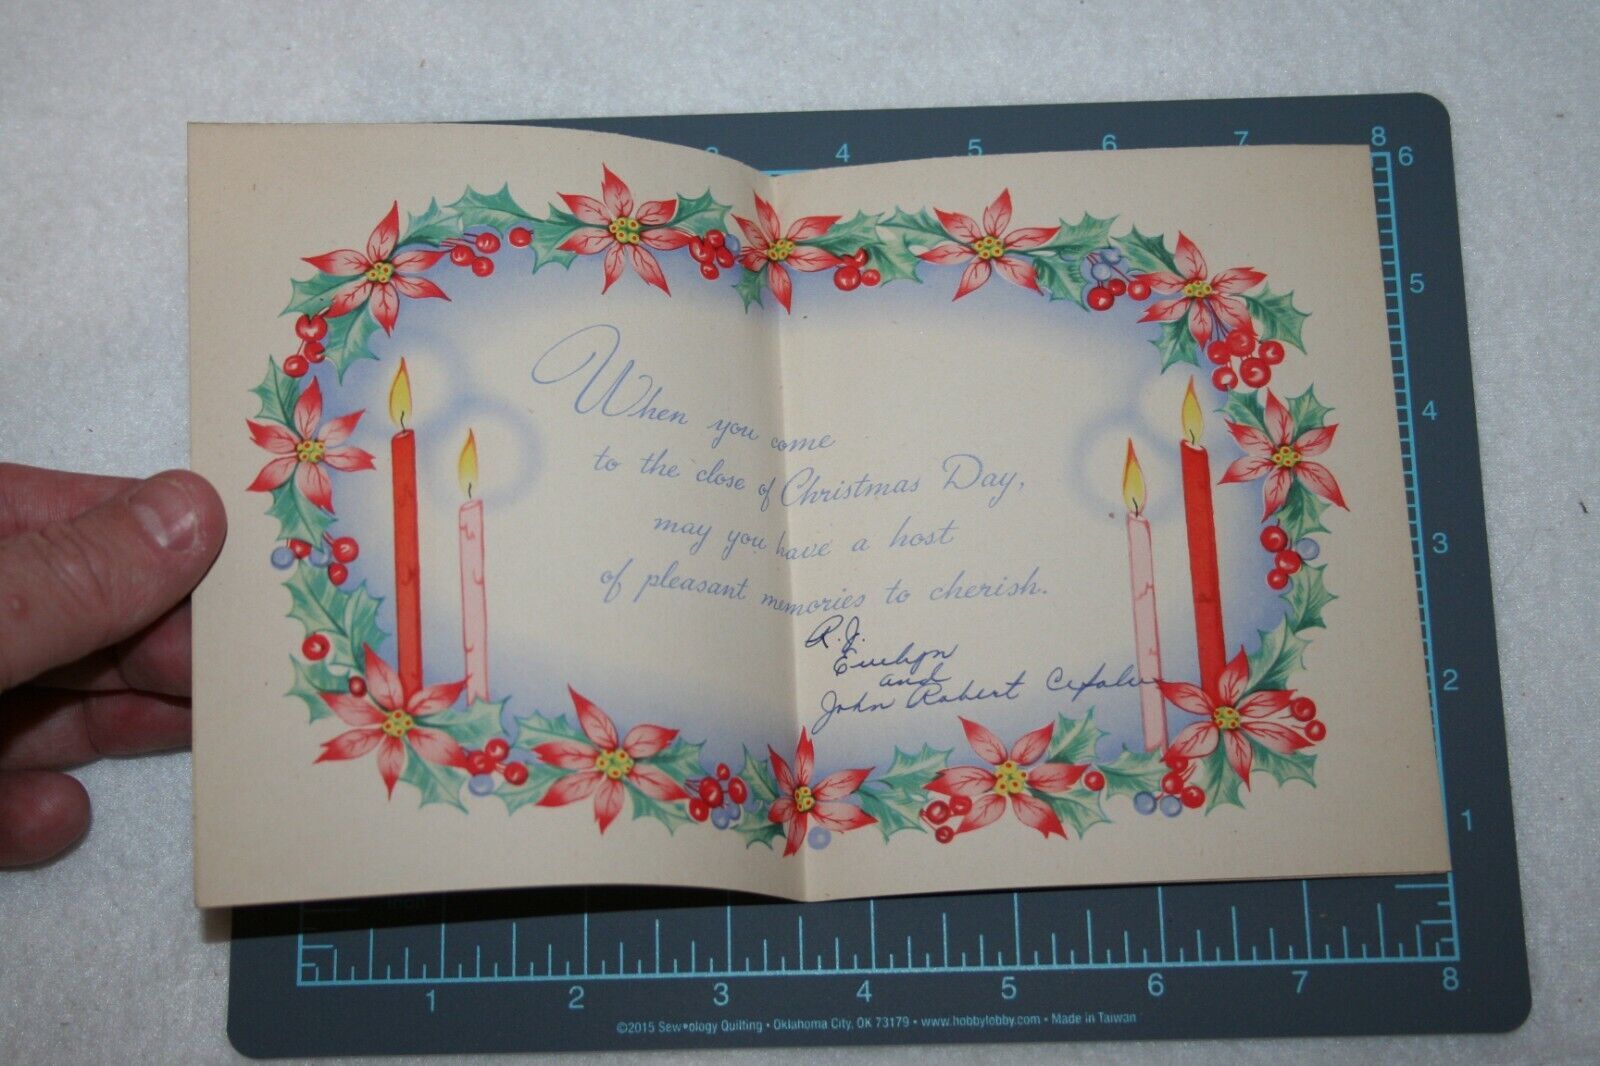 4 5 6 7 8
6
5
4
3
2
1
When you come
to the close of Christmas Day,
may you have a host
of pleasant memories to cherish.
R.J.
Evelyn
and
John Robert
1 2 3 4 5 6 7 8
©2015 Sew•ology Quilting • Oklahoma City, OK 73179 • www.hobbylobby.com • Made in Taiwan